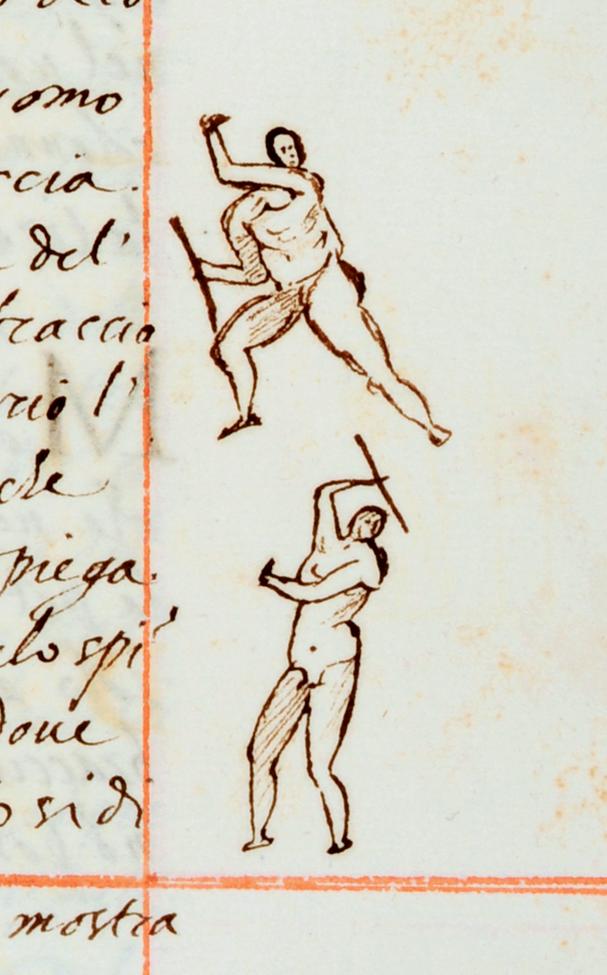 uomo
ccia.
del'
braccio
rio l'
che
piega.
lo spi
doue
o si di
mostra